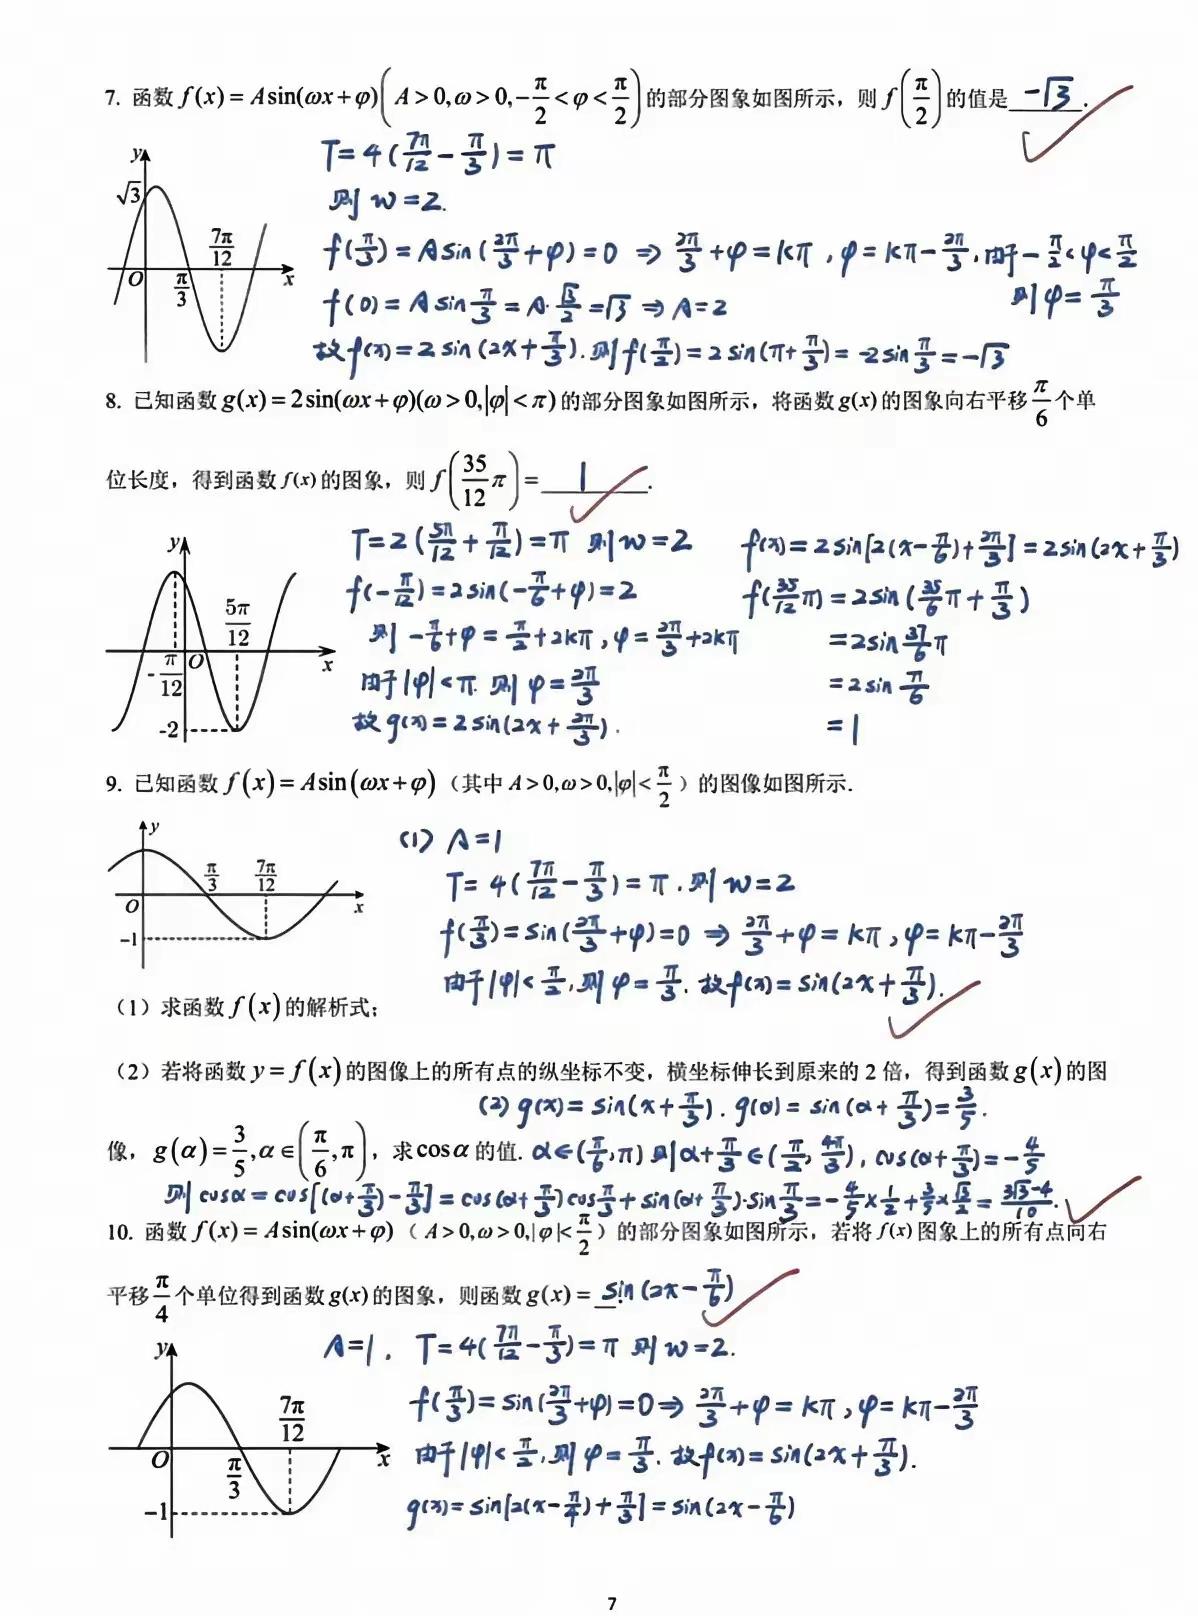 7. 函数 f(x) = Asin(ωx+φ)(A>0,ω>0,-π/2<φ<π/2)的部分图象如图所示，则 f(π/2) 的值是 -√3 .
T=4(7π/12-π/3)=π
则 w=2.
f(π/3)=Asin(2π/3+φ)=0 ⇒ 2π/3+φ=kπ,φ=kπ-2π/3,由于-π/2<φ<π/2
则φ=π/3
f(0)=Asinπ/3=A·√3/2=√3⇒A=2
故f(x)=2sin(2x+π/3).则f(π/2)=2sin(π+π/3)=-2sinπ/3=-√3
y
√3
7π/12
O
π/3
x
8. 已知函数 g(x)=2sin(ωx+φ)(ω>0,|φ|<π)的部分图象如图所示，将函数 g(x) 的图象向右平移 π/6 个单
位长度，得到函数 f(x) 的图象，则 f(35/12 π)= 1 .
T=2(5π/12+π/12)=π 则w=2
f(-π/12)=2sin(-π/6+φ)=2
则 -π/6+φ=π/2+2kπ,φ=2π/3+2kπ
由于|φ|<π.则φ=2π/3
故g(x)=2sin(2x+2π/3).
f(x)=2sin[2(x-π/6)+2π/3]=2sin(2x+π/3)
f(35/12π)=2sin(35/6π+π/3)
=2sin37/6π
=2sinπ/6
=1
y
5π/12
-π/12
O
x
-2
9. 已知函数 f(x)=Asin(ωx+φ)（其中 A>0,ω>0,|φ|<π/2）的图像如图所示.
(1) A=1
T=4(7π/12-π/3)=π.则w=2
f(π/3)=sin(2π/3+φ)=0 ⇒ 2π/3+φ=kπ,φ=kπ-2π/3
由于|φ|<π/2,则φ=π/3.故f(x)=sin(2x+π/3).
y
π/3
7π/12
O
x
-1
（1）求函数 f(x) 的解析式；
（2）若将函数 y=f(x) 的图像上的所有点的纵坐标不变，横坐标伸长到原来的 2 倍，得到函数 g(x) 的图
(2) g(x)=sin(x+π/3).g(α)=sin(α+π/3)=3/5.
像，g(α)=3/5,α∈(π/6,π)，求cosα的值. α∈(π/6,π)则α+π/3∈(π/2,4π/3),cos(α+π/3)=-4/5
则cosα=cos[(α+π/3)-π/3]=cos(α+π/3)cosπ/3+sin(α+π/3)·sinπ/3=-4/5×1/2+3/5×√3/2=(3√3-4)/10.
10. 函数 f(x)=Asin(ωx+φ)（A>0,ω>0,|φ|<π/2）的部分图象如图所示，若将 f(x) 图象上的所有点向右
平移 π/4 个单位得到函数 g(x) 的图象，则函数 g(x)= sin(2x-π/6) .
A=1. T=4(7π/12-π/3)=π 则w=2.
f(π/3)=sin(2π/3+φ)=0⇒2π/3+φ=kπ,φ=kπ-2π/3
由于|φ|<π/2,则φ=π/3.故f(x)=sin(2x+π/3).
g(x)=sin[2(x-π/4)+π/3]=sin(2x-π/6)
y
7π/12
O
π/3
x
-1
7